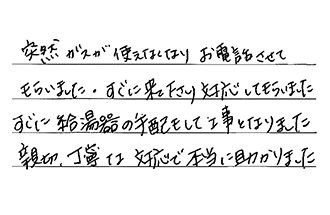 突然 ガスが使えなくなり お電話させて
もらいました。すぐに来て下さり 対応してもらいました
すぐに給湯器の手配もして工事となりました
親切、丁寧な対応で本当に助かりました